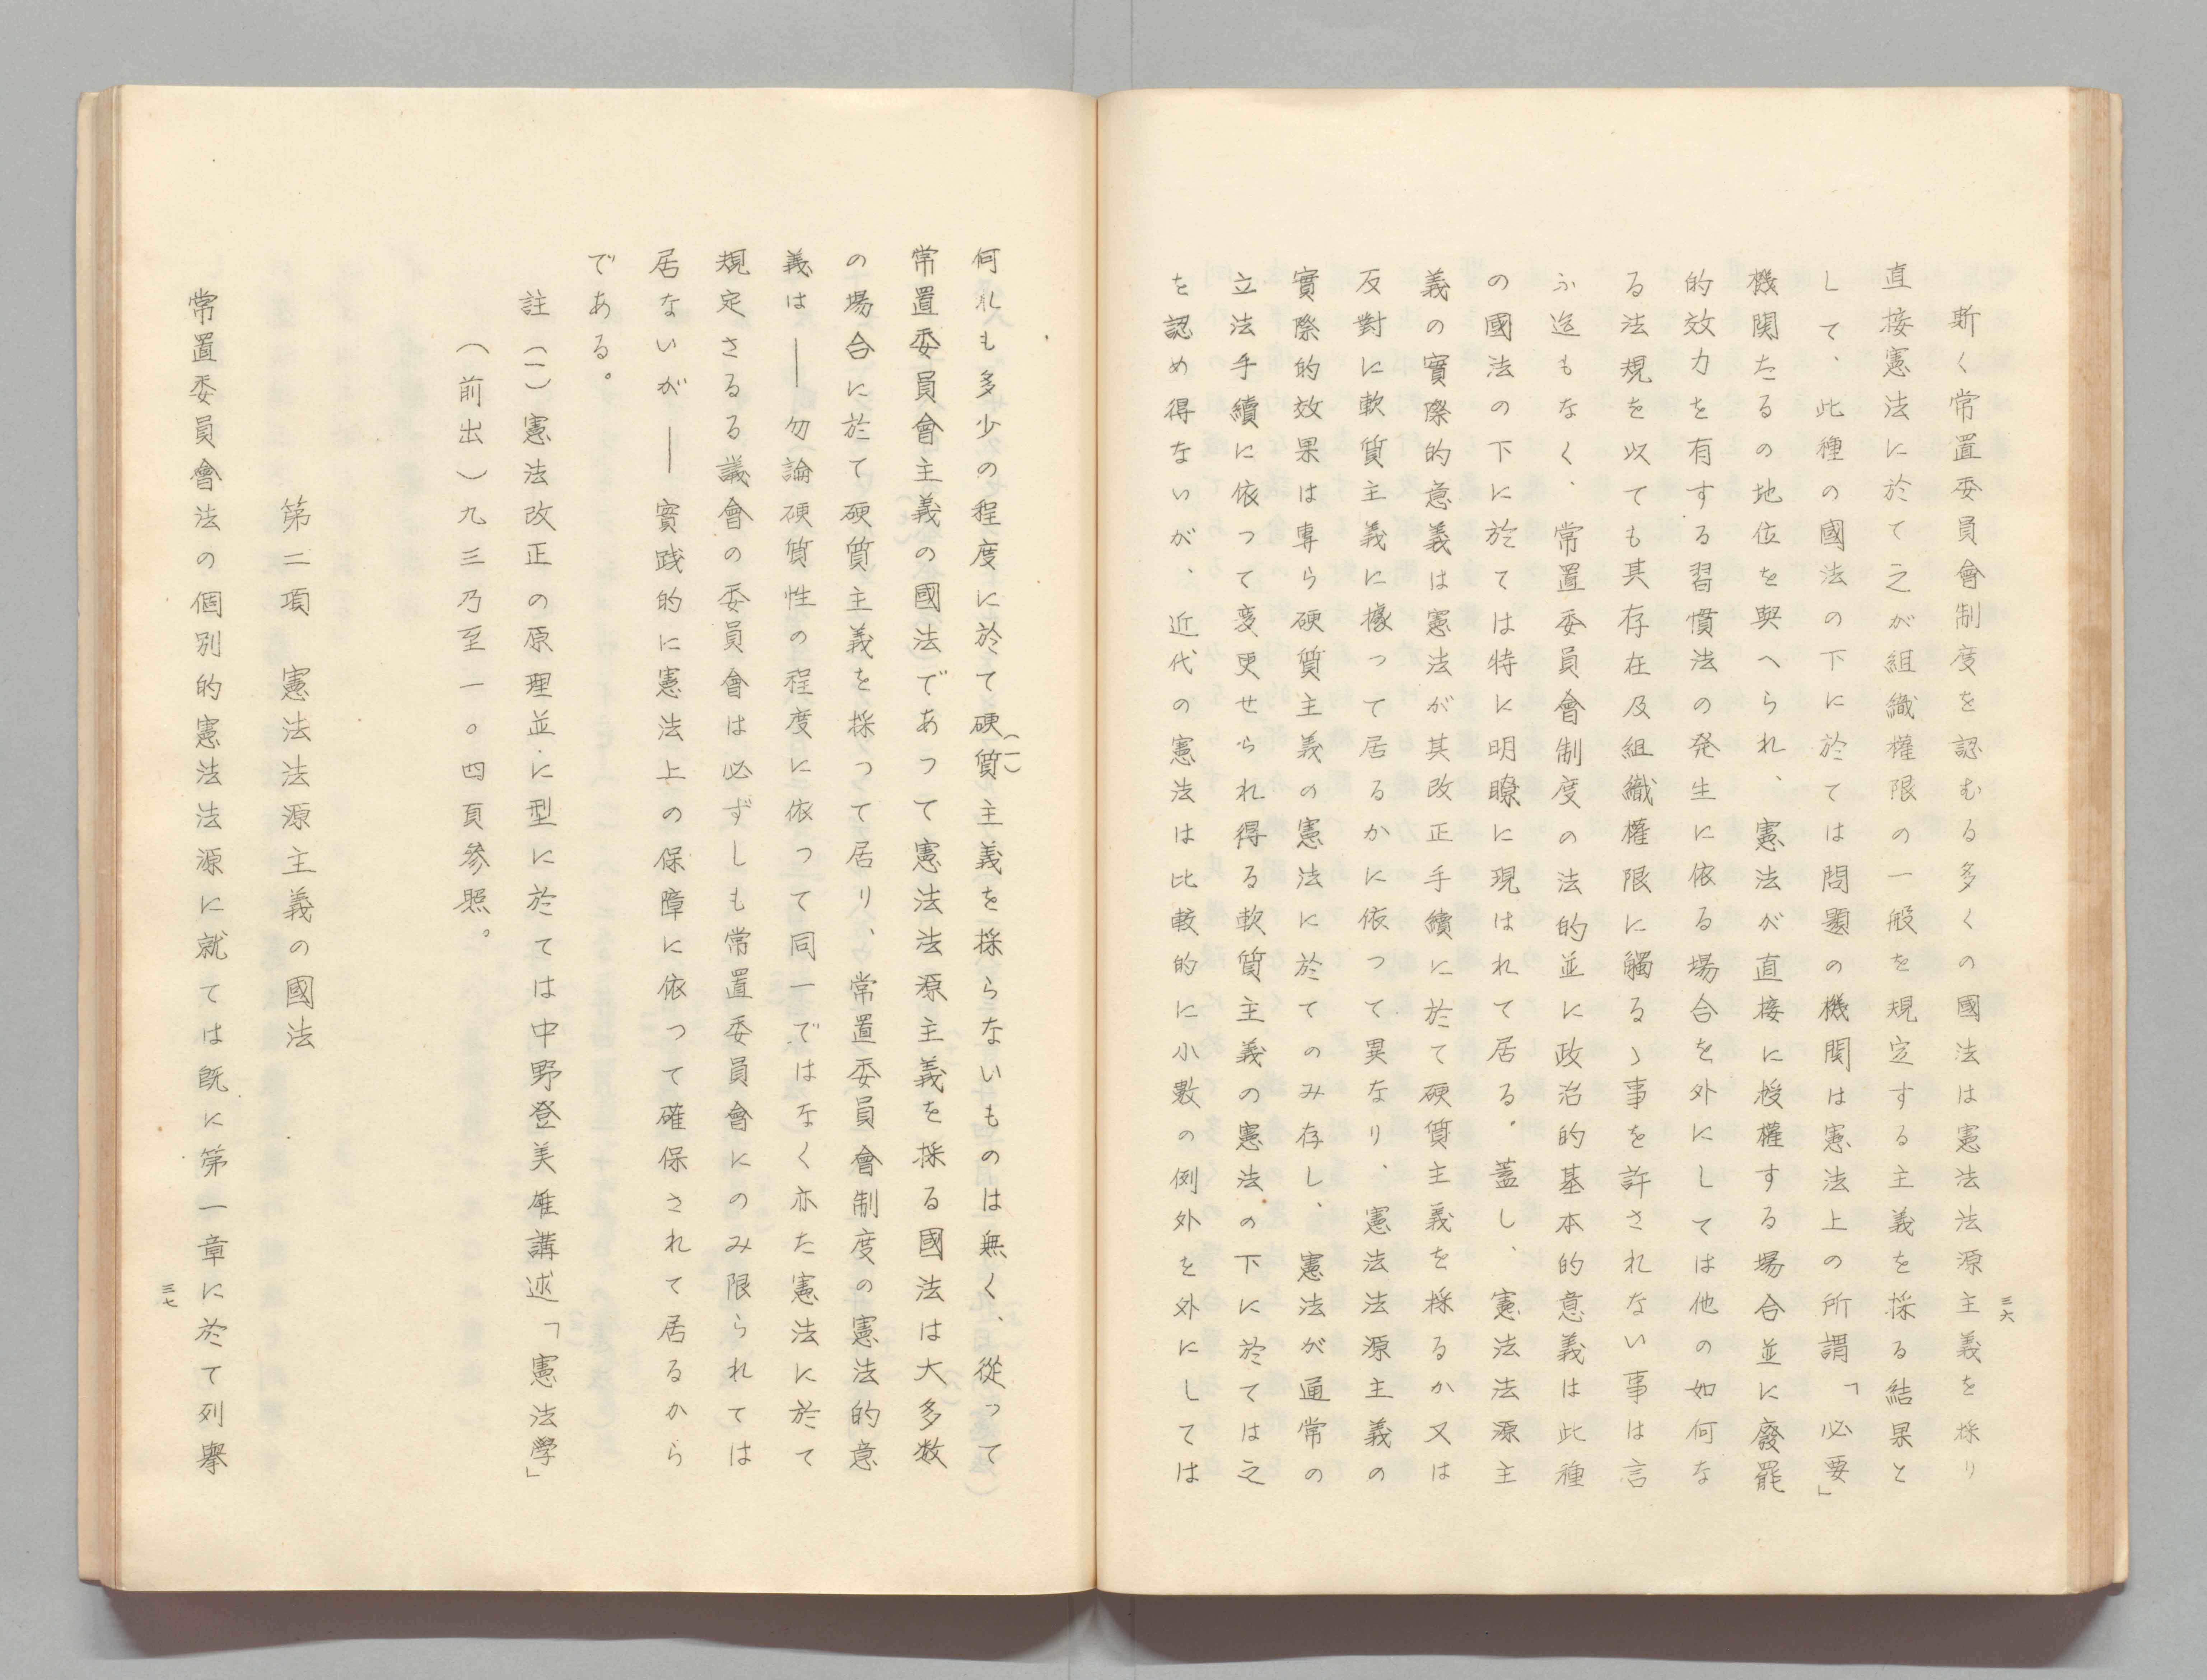 斯く常置委員會制度を認むる多くの國法は憲法法源主義を採り
直接憲法に於て之が組織權限の一般を規定する主義を採る結果と
して、此種の國法の下に於ては問題の機関は憲法上の所謂「必要」
機関たるの地位を與へられ、憲法が直接に授權する場合並に廢罷
的效力を有する習慣法の発生に依る場合を外にしては他の如何な
る法規を以ても其存在及組織權限に觸るゝ事を許されない事は言
ふ迄もなく、常置委員會制度の法的並に政治的基本的意義は此種
の國法の下に於ては特に明瞭に現はれて居る。蓋し、憲法法源主
義の實際的意義は憲法が其改正手續に於て硬質主義を採るか又は
反對に軟質主義に據つて居るかに依つて異なり、憲法法源主義の
實際的效果は専ら硬質主義の憲法に於てのみ存し、憲法が通常の
立法手續に依つて変更せられ得る軟質主義の憲法の下に於ては之
を認め得ないが、近代の憲法は比較的に小數の例外を外にしては
三六
何れも多少の程度に於て硬質主義を採らないものは無く、從つて
(一)
常置委員會主義の國法であつて憲法法源主義を採る國法は大多数
の場合に於て硬質主義を採つて居り、常置委員會制度の憲法的意
義は――勿論硬質性の程度に依つて同一ではなく亦た憲法に於て
規定さるる議會の委員會は必ずしも常置委員會にのみ限られては
居ないが――實践的に憲法上の保障に依つて確保されて居るから
である。
註(一)憲法改正の原理並に型に於ては中野登美雄講述「憲法学」
(前出)九三乃至一〇四頁參照。
第二項 憲法法源主義の國法
常置委員會法の個別的憲法法源に就ては既に第一章に於て列擧
三七